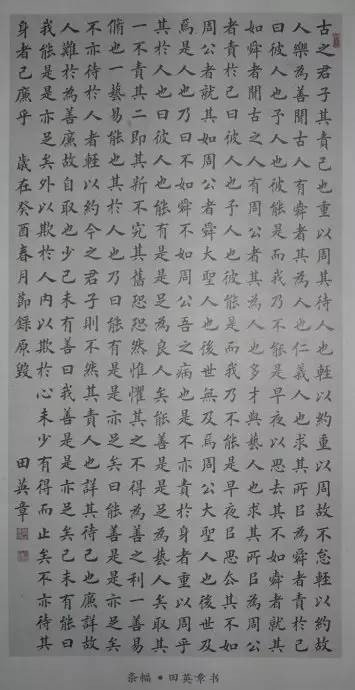 古之君子其責己也重以周其待人也輕以約重以周故不怠輕以約故
人樂為善聞古人有舜者其為人也仁義人也求其所以為舜者責於己
曰彼人也予人也彼能是而我乃不能是早夜以思去其不如舜者就其
如舜者聞古之人有周公者其為人也多才與藝人也求其所以為周公
者責於己曰彼人也予人也彼能是而我乃不能是早夜以思去其不如
周公者就其如周公者舜大聖人也後世無及焉周公大聖人也後世及
焉是人也乃曰不如舜不如周公吾之病也是不亦責於身者重以周乎
其於人也曰彼人也能有是是足為良人矣能善是是足為藝人矣取其
一不責其二即其新不究其舊恐恐然惟懼其之不得為善之利一善易
脩也一藝易能也其於人也乃曰能有是是亦足矣曰能善是是亦足矣
不亦待於人者輕以約今之君子則不然其責人也詳其待己也廉詳故
人難於為善廉故自取也少己未有善曰我善是是亦足矣己未有能曰
我能是是亦足矣外以欺於人內以欺於心未少有得而止矣不亦待其
身者已廉乎 歲在癸酉春月節錄原毀 田英章
条幅·田英章书